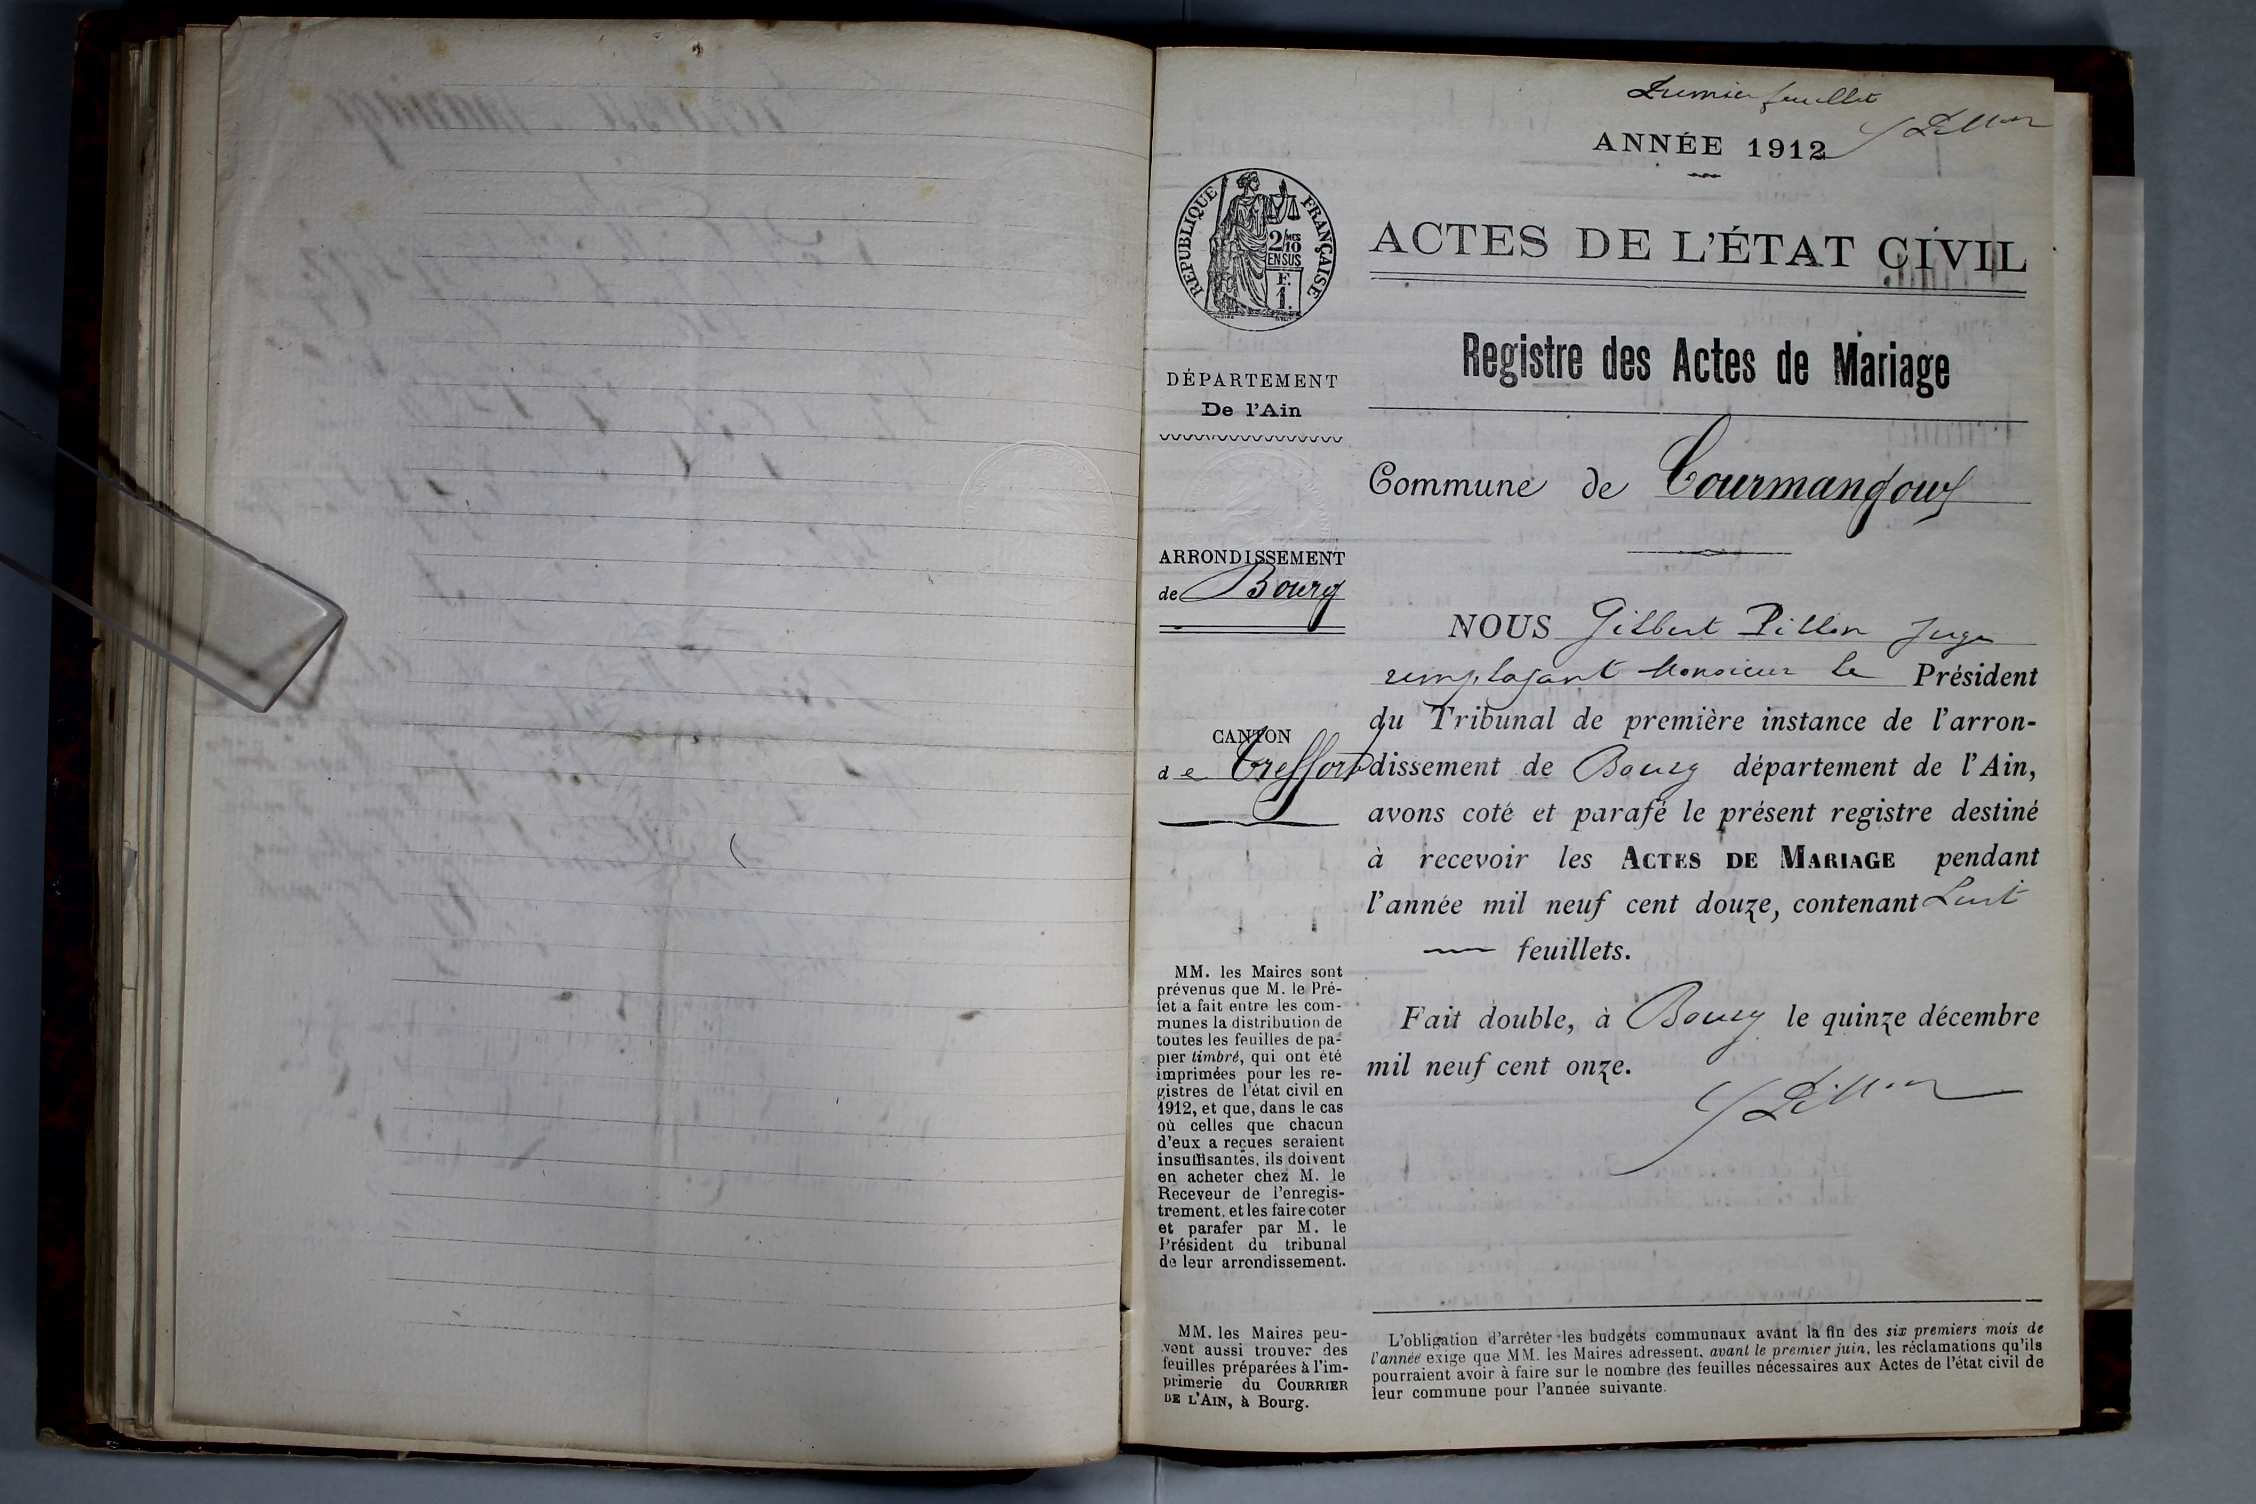 Premier feuillet
GPillon
ANNÉE 1912
RÉPUBLIQUE FRANÇAISE
2/10 MES
EN SUS
F.
1.
ACTES DE L'ÉTAT CIVIL
Registre des Actes de Mariage
DÉPARTEMENT
De l'Ain
Commune de Courmangoux
ARRONDISSEMENT
de Bourg
CANTON
de Treffort
NOUS Gilbert Pillon Juge
remplaçant Monsieur le Président
du Tribunal de première instance de l'arron-
dissement de Bourg département de l'Ain,
avons coté et parafé le présent registre destiné
à recevoir les ACTES DE MARIAGE pendant
l'année mil neuf cent douze, contenant huit
feuillets.
Fait double, à Bourg le quinze décembre
mil neuf cent onze.
GPillon
MM. les Maires sont
prévenus que M. le Pré-
fet a fait entre les com-
munes la distribution de
toutes les feuilles de pa-
pier timbré, qui ont été
imprimées pour les re-
gistres de l'état civil en
1912, et que, dans le cas
où celles que chacun
d'eux a reçues seraient
insuffisantes, ils doivent
en acheter chez M. le
Receveur de l'enregis-
trement, et les faire coter
et parafer par M. le
Président du tribunal
de leur arrondissement.
MM. les Maires peu-
vent aussi trouver des
feuilles préparées à l'im-
primerie du COURRIER
DE L'AIN, à Bourg.
L'obligation d'arrêter les budgets communaux avant la fin des six premiers mois de
l'année exige que MM. les Maires adressent, avant le premier juin, les réclamations qu'ils
pourraient avoir à faire sur le nombre des feuilles nécessaires aux Actes de l'état civil de
leur commune pour l'année suivante.